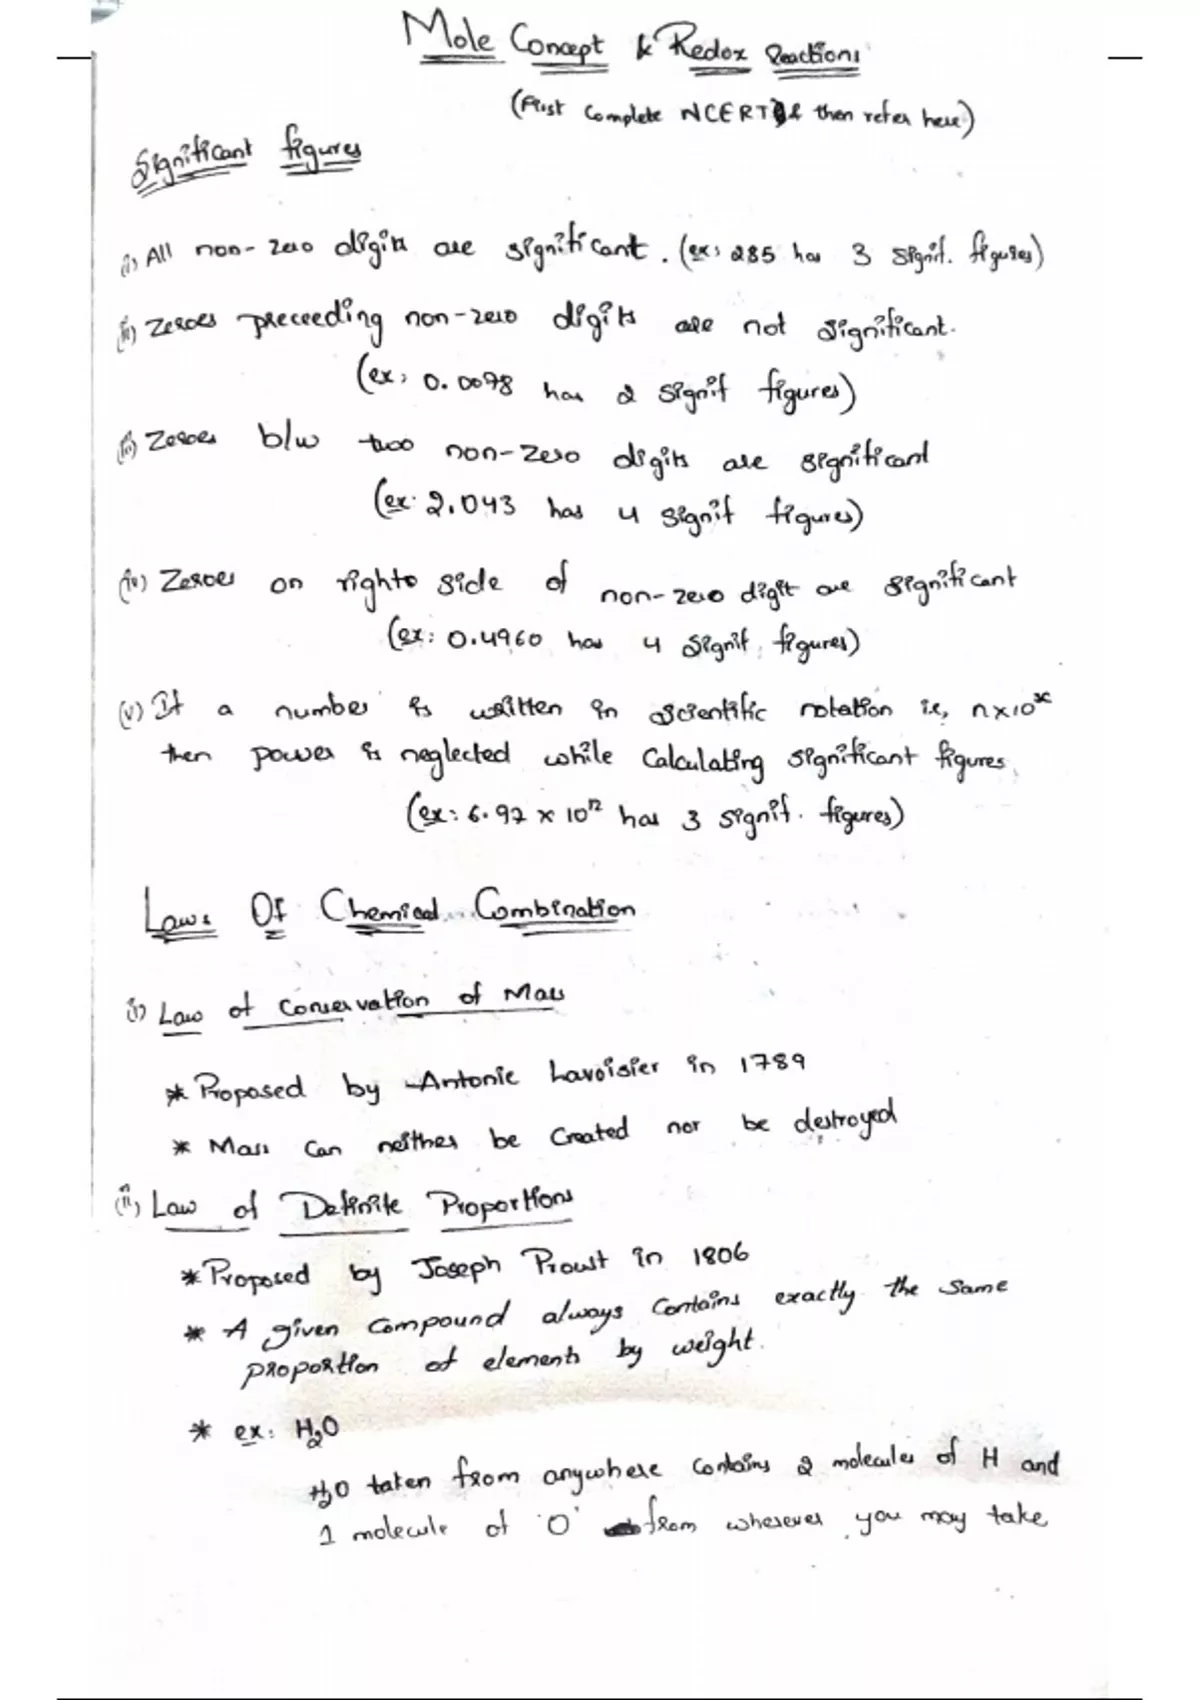 Mole Concept & Redox Reactions
(First Complete NCERT & then refer here)
Significant figures
(i) All non-zero digits are significant. (ex: 285 has 3 signif. figures)
(ii) Zeroes preceeding non-zero digits are not significant.
(ex: 0.0078 has 2 signif figures)
(iii) Zeroes b/w two non-zero digits are significant
(ex: 2.043 has 4 signif figures)
(iv) Zeroes on righto side of non-zero digit are significant
(ex: 0.4960 has 4 signif. figures)
(v) If a number is written in scientific notation i.e, n×10ˣ
then power is neglected while Calculating significant figures.
(ex: 6.92 × 10¹² has 3 signif. figures)
Laws Of Chemical Combination
(i) Law of Conservation of Mass
* Proposed by Antonie Lavoisier in 1789
* Mass Can neither be Created nor be destroyed
(ii) Law of Definite Proportions
* Proposed by Joseph Proust in 1806
* A given Compound always Contains exactly the same
proportion of elements by weight.
* ex: H₂O
H₂O taken from anywhere Contains 2 molecules of H and
1 molecule of 'O' from wherever you may take